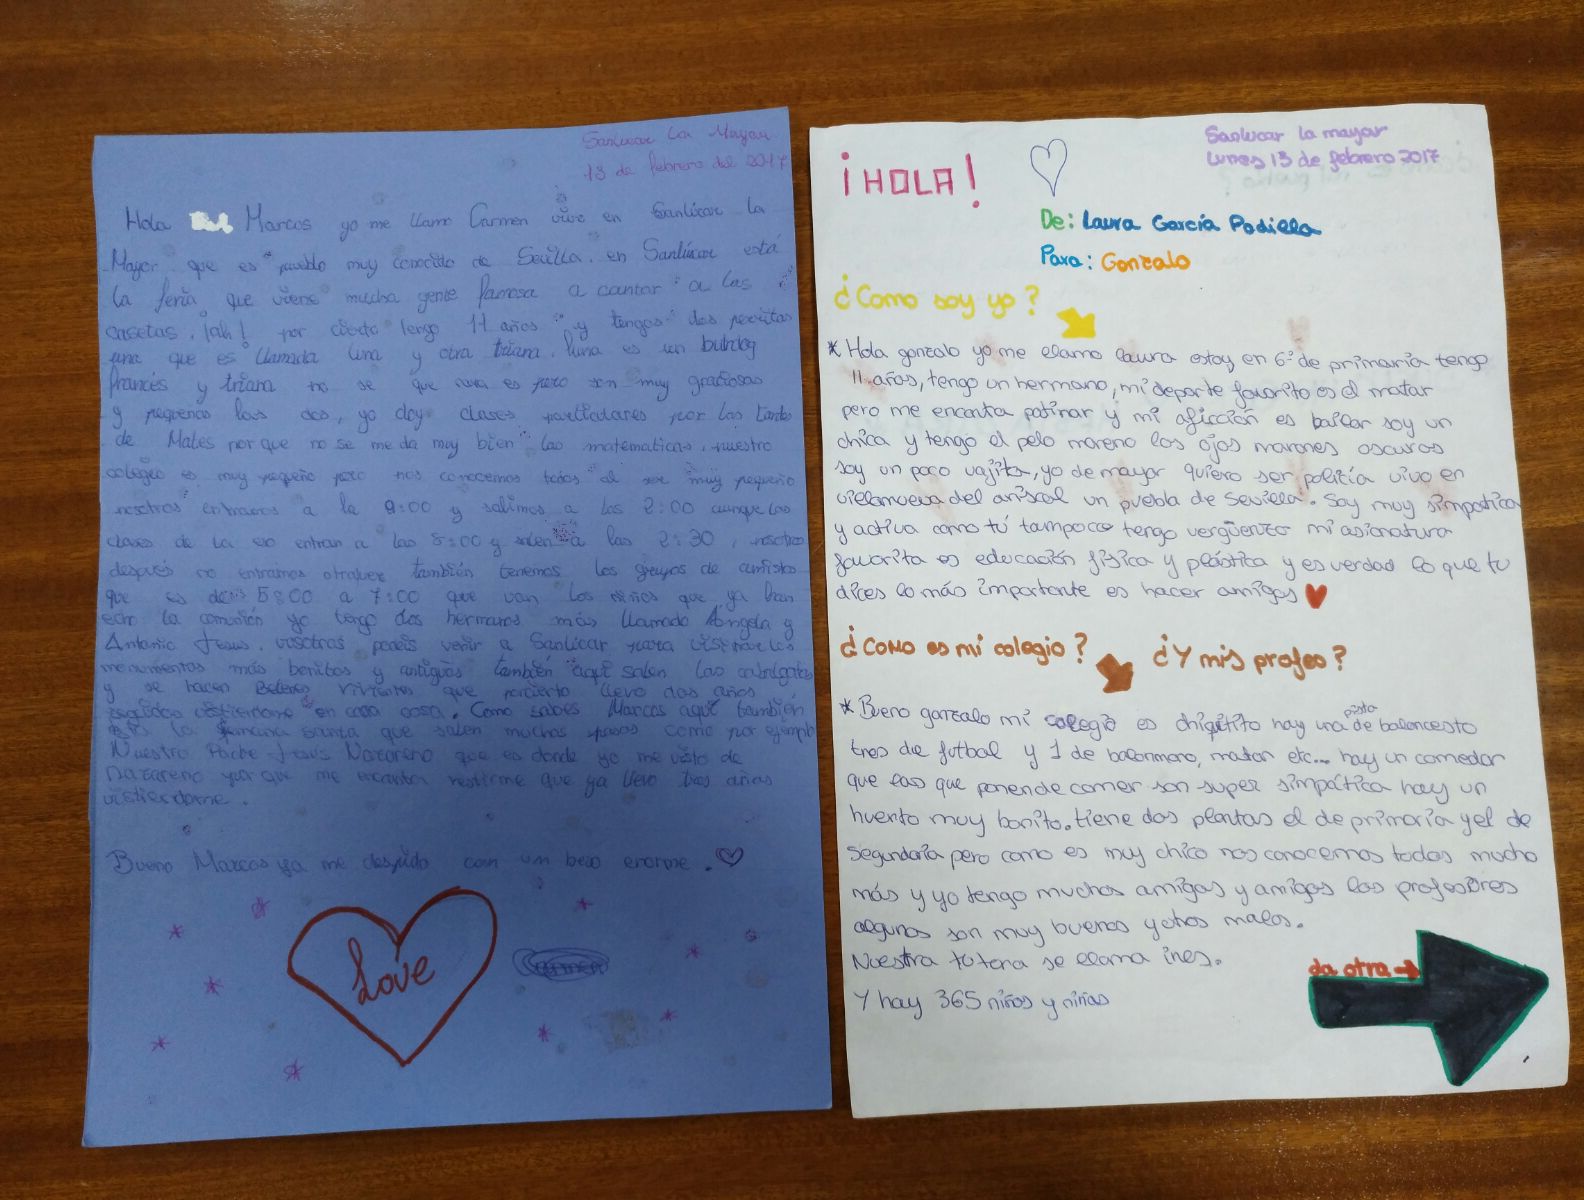 Sanlucar La Mayor
13 de febrero del 2017
Hola Marcos yo me llamo Carmen vivo en Sanlúcar la
Mayor que es pueblo muy conocido de Sevilla. en Sanlúcar está
la feria que viene mucha gente famosa a cantar a las
casetas. ¡ah! por cierto tengo 11 años y tengos dos perritas
una que es llamada luna y otra triana. luna es un buldog
francés y triana no se que raza es pero son muy graciosas
y pequeñas las dos, yo doy clases particulares por las tardes
de Mates porque no se me da muy bien las matematicas, nuestro
colegio es muy pequeño pero nos conocemos todos al ser muy pequeño
nosotros entramos a la 9:00 y salimos a las 2:00 aunque los
clases de la eso entran a las 8:00 y salen a las 2:30, nosotros
después no entramos otravez también tenemos los grupos de amistad
que es de 5:00 a 7:00 que van los niños que ya han
echo la comunión yo tengo dos hermanos más llamado Ángela y
Antonio Jesus. vosotros podeis venir a Sanlúcar para visitar los
monumentos más bonitos y antiguos también aquí salen las cabalgatas
y se hacen Belenes vivientes que porcierto llevo dos años
seguidos vistiendome en cada cosa. Como sabes Marcos aquí también
está la semana santa que salen muchos pasos como por ejemplo
Nuestro Padre Jesús Nazareno que es donde yo me visto de
Nazareno por que me encanta vestirme que ya llevo tres años
vistiendome.
Bueno Marcos ya me despido con un beso enorme.
Love
Sanlucar la mayor
Lunes 13 de febrero 2017
¡HOLA!
De: Laura García Padilla
Para: Gonzalo
¿Como soy yo?
* Hola gonzalo yo me llamo laura estoy en 6º de primaria tengo
11 años, tengo un hermano, mi deporte favorito es el matar
pero me encanta patinar y mi aficción es bailar soy un
chica y tengo el pelo moreno los ojos marones oscuros
soy un poco vajita, yo de mayor quiero ser policía vivo en
villanueva del ariscal un puebla de Sevilla. Soy muy simpatica
y activa como tú tampoco tengo vergüenza mi asionatura
favorita es educación fisica y plástica y es verdad lo que tu
dices lo más importante es hacer amigos
¿Como es mi colegio? ¿Y mis profes?
* Bueno gonzalo mi colegio es chiqitito hay una pista de baloncesto
tres de futbol y 1 de balonmano, matar etc... hay un comedor
que las que ponen de comer son super simpática hay un
huerto muy bonito. tiene dos plantas el de primaria y el de
segundaria pero como es muy chico nos conocemos todos mucho
más y yo tengo muchos amigas y amigos los profesores
algunos son muy buenos y otros malos.
Nuestra tutora se llama ines.
Y hay 365 niños y niñas
da otra →